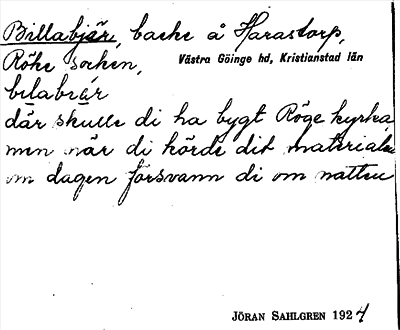 Billabjär, backe å Harastorp,
Röke socken, Västra Göinge hd, Kristianstad län
bilabrár
där skulle di ha bygt Röge kyrka
men när di körde dit material
om dagen försvann di om natten
JÖRAN SAHLGREN 1924